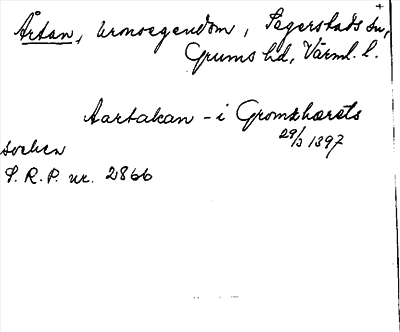 Årtan, kronoegendom, Segerstads sn,
Grums hd, Värml. l.
Aartakan - i Gromshæræts
29/3 1397
socken
S. R. P. nr. 2866